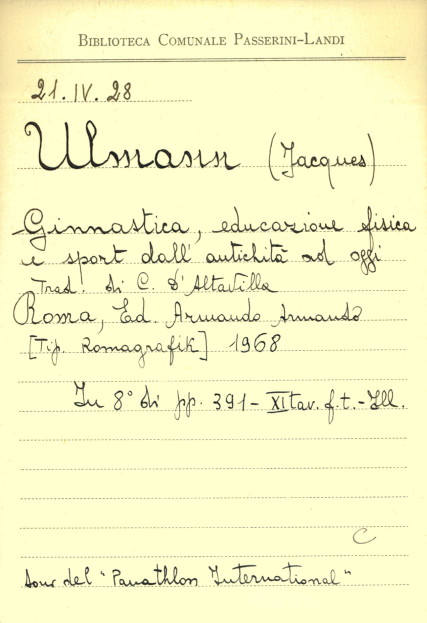 BIBLIOTECA COMUNALE PASSERINI-LANDI
21. IV. 28
Ulmann (Jacques)
Ginnastica, educazione fisica
e sport dall'antichità ad oggi
Trad. di C. D'Altavilla
Roma, Ed. Armando Armando
[Tip. Romagrafik] 1968
In 8° di pp. 391 - XI tav. f.t. - Ill.
C
dono del "Panathlon International"